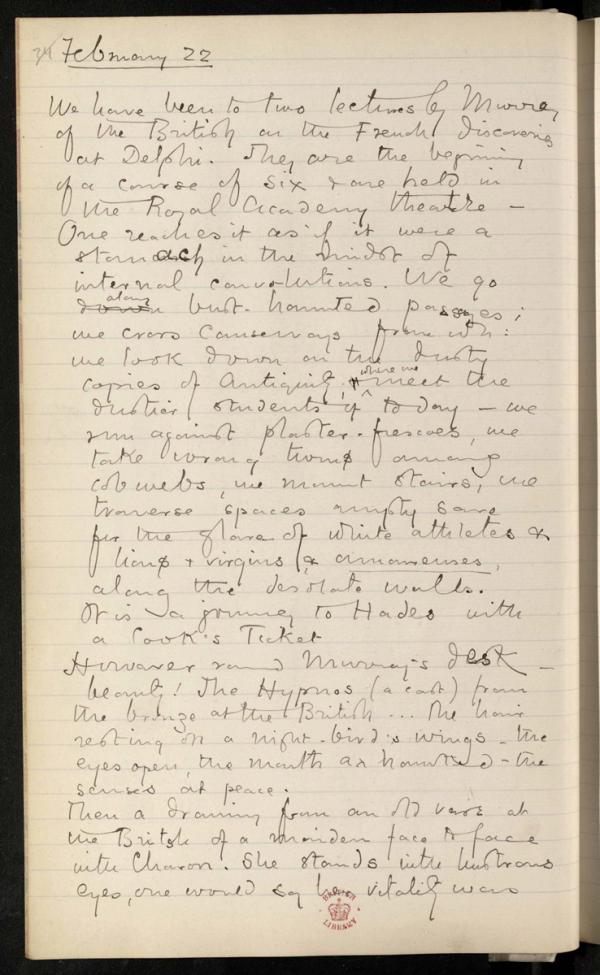 24 February 22
We have been to two lectures by Murray
of the British on the French discoveries
at Delphi. They are the beginning
of a course of six & are held in
the Royal Academy theatre –
One reaches it as if it were a
stomach in the midst of
internal convolutions. We go
down along bust-haunted passages;
we cross causeways from wh:
we look down on the dusty
copies of Antiquity, & where we meet the
dustier students of to day – we
run against plaster-frescoes, we
take wrong turns among
cobwebs, we mount stairs, we
traverse spaces empty save
for the glare of white athletes &
lions & virgins &
along the desolate walls.
It is a journey to Hades with
a Cook's Ticket
However round Murray's desk –
beauty! The Hypnos (a cast) from
the bronze at the British ... The hair
resting on a night-bird's wings – the
eyes open, the mouth as haunted – the
senses at peace.
Then a drawing from an old vase at
the British of a maiden face to face
with Charon. She stands with lustrous
eyes, one would say her vitality was
BRITISH
LIBRARY